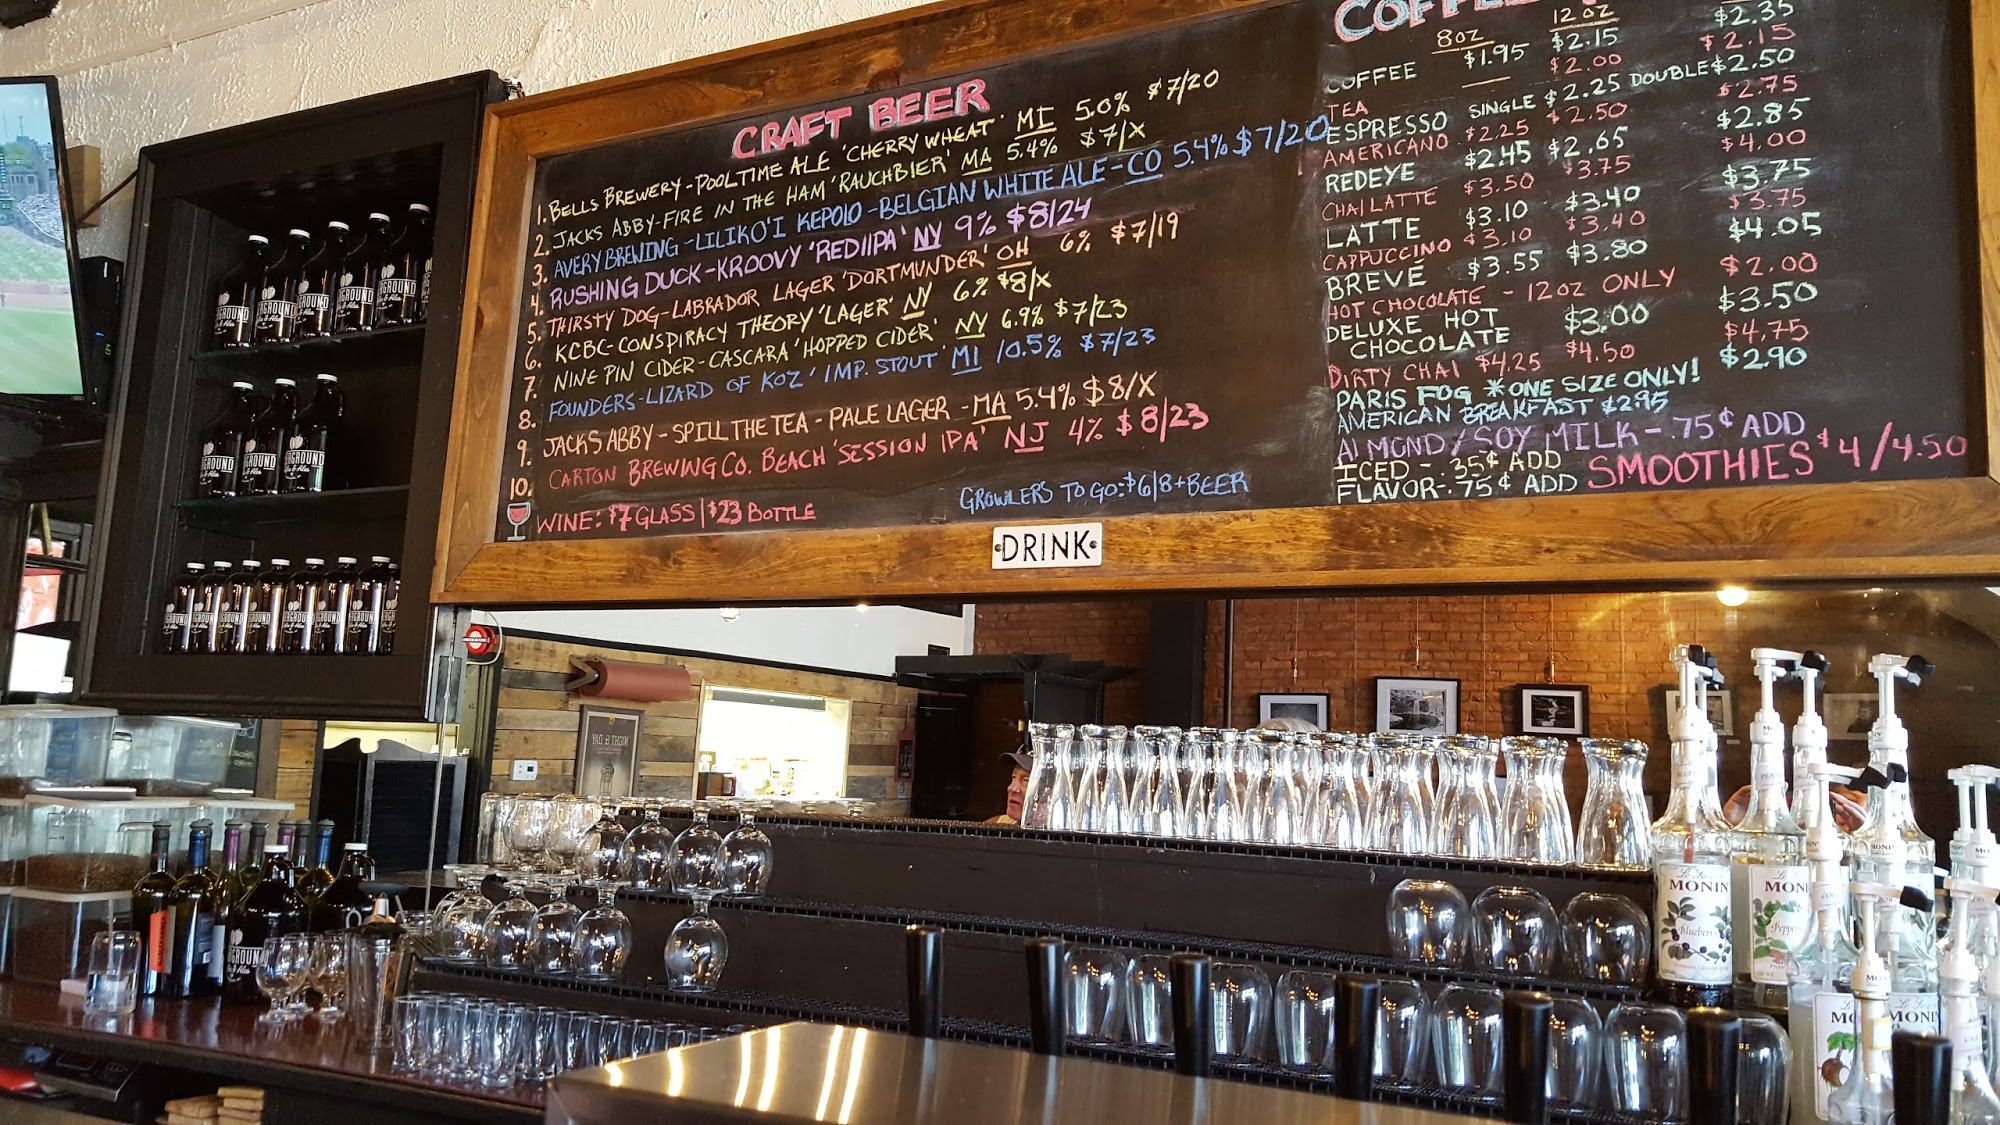 CRAFT BEER
1. BELLS BREWERY - POOLTIME ALE 'CHERRY WHEAT' MI 5.0% $7/20
2. JACKS ABBY - FIRE IN THE HAM 'RAUCHBIER' MA 5.4% $7/X
3. AVERY BREWING - LILIKO'I KEPOLO - BELGIAN WHITE ALE - CO 5.4% $7/20
4. RUSHING DUCK - KROOVY 'RED IIPA' NY 9% $8/24
5. THIRSTY DOG - LABRADOR LAGER 'DORTMUNDER' OH 6% $7/19
6. KCBC - CONSPIRACY THEORY 'LAGER' NY 6% $8/X
7. NINE PIN CIDER - CASCARA 'HOPPED CIDER' NY 6.9% $7/23
8. FOUNDERS - LIZARD OF KOZ 'IMP. STOUT' MI 10.5% $7/23
9. JACKS ABBY - SPILL THE TEA - PALE LAGER - MA 5.4% $8/X
10. CARTON BREWING CO. BEACH 'SESSION IPA' NJ 4% $8/23
WINE: $7 GLASS | $23 BOTTLE
GROWLERS TO GO: $6/8 + BEER
COFFEE
8oz 12oz
COFFEE $1.95 $2.15 $2.35
TEA — $2.00 $2.15
ESPRESSO SINGLE $2.25 DOUBLE $2.50
AMERICANO $2.25 $2.50 $2.75
REDEYE $2.45 $2.65 $2.85
CHAI LATTE $3.50 $3.75 $4.00
LATTE $3.10 $3.40 $3.75
CAPPUCCINO $3.10 $3.40 $3.75
BREVÉ $3.55 $3.80 $4.05
HOT CHOCOLATE - 12oz ONLY $2.00
DELUXE HOT
CHOCOLATE $3.00 $3.50
DIRTY CHAI $4.25 $4.50 $4.75
PARIS FOG *ONE SIZE ONLY! $2.90
AMERICAN BREAKFAST $2.95
ALMOND/SOY MILK - .75¢ ADD
ICED - .35¢ ADD
FLAVOR - .75¢ ADD
SMOOTHIES $4/4.50
DRINK
NIGHT & DAY
MONIN
Blueberry
MONIN
MONIN